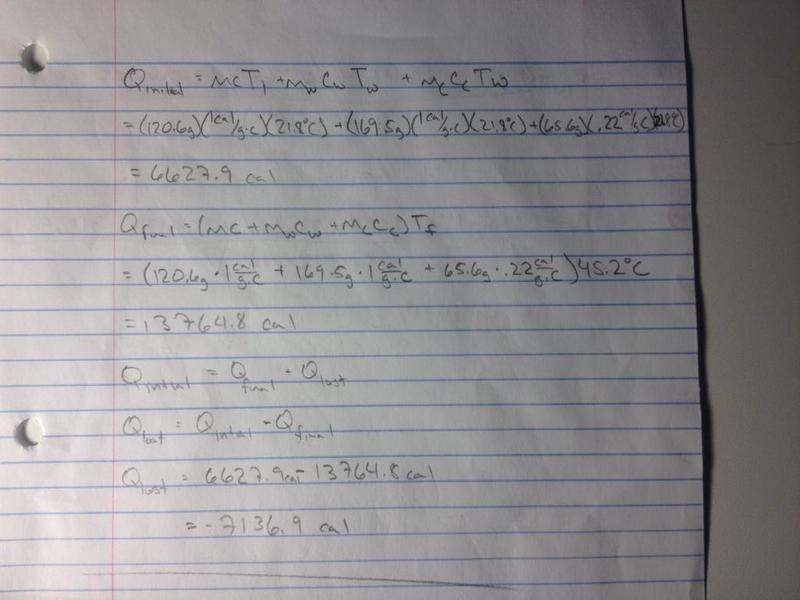 Q initial = mCT₁ + m_w C_w T_w + m_c C_c T_w
= (120.6g)(1 cal/g·c)(21.8°C) + (169.5g)(1 cal/g·c)(21.8°C) + (65.6g)(.22 cal/g·c)(21.8°C)
= 6627.9 cal
Q final = (mC + m_w C_w + m_c C_c) T_f
= (120.6g · 1 cal/g·C + 169.5g · 1 cal/g·C + 65.6g · .22 cal/g·C) 45.2°C
= 13764.8 cal
Q initial = Q final - Q lost
Q lost = Q initial - Q final
Q lost = 6627.9 cal - 13764.8 cal
= -7136.9 cal